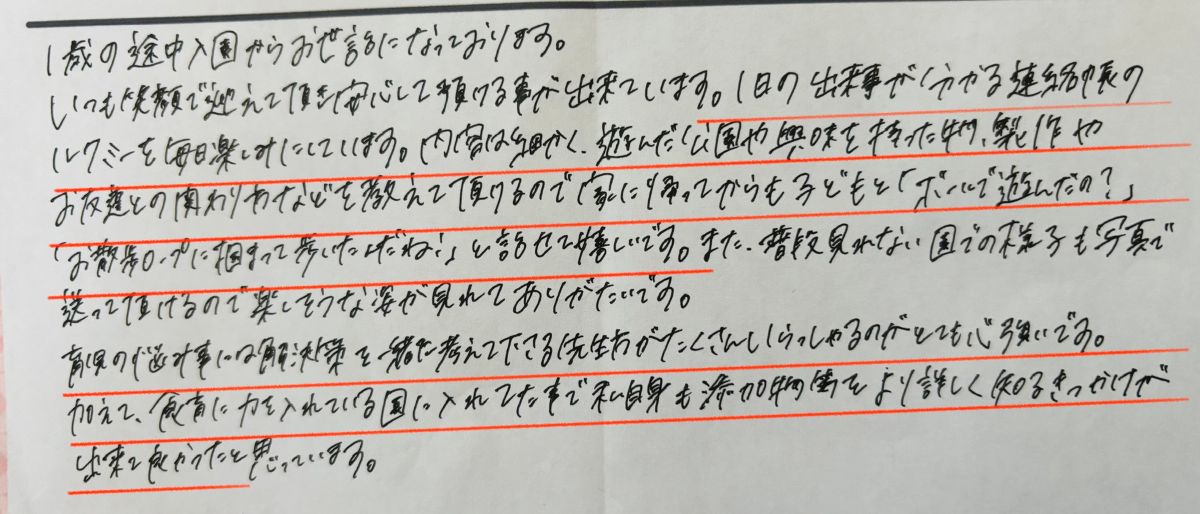 1歳の途中入園からお世話になっております。
いつも笑顔で迎えて頂き安心して預ける事が出来ています。1日の出来事が分かる連絡帳の
ルクミーを毎日楽しみにしています。内容は細かく、遊んだ公園や興味を持った物、製作や
お友達との関わりかなどを教えて頂けるので家に帰ってからも子どもと「ボールで遊んだの?」
「お散歩ロープに掴まって歩いたんだね!」と話せて嬉しいです。また、普段見れない園での様子も写真で
送って頂けるので楽しそうな姿が見れてありがたいです。
育児の悩み事には解決策を一緒に考えて下さる先生方がたくさんいらっしゃるのがとても心強いです。
加えて、食育に力を入れている園に入れてた事で私自身も添加物等をより詳しく知るきっかけが
出来て良かったと思っています。